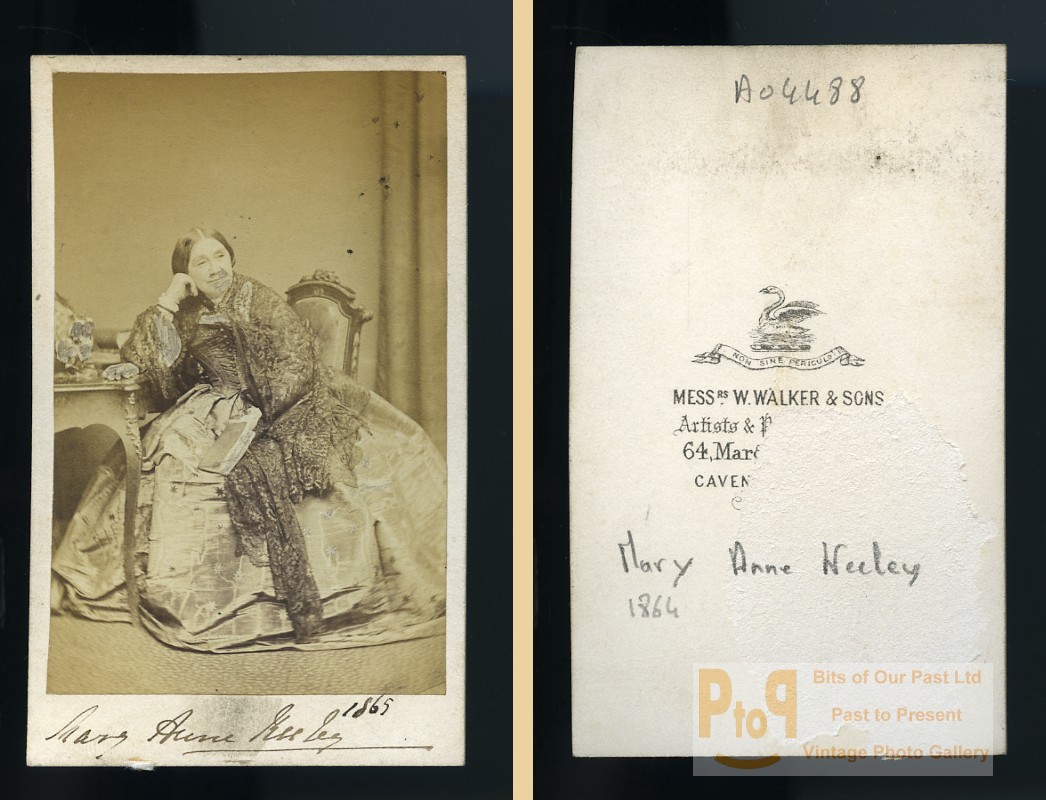 Mary Anne Keeley 1865
A04488
NON SINE PERICULO
MESSRS W. WALKER & SONS
Artists & P
64, Mar
CAVEN
Mary Anne Keeley
1864
PtoP
Bits of Our Past Ltd
Past to Present
Vintage Photo Gallery